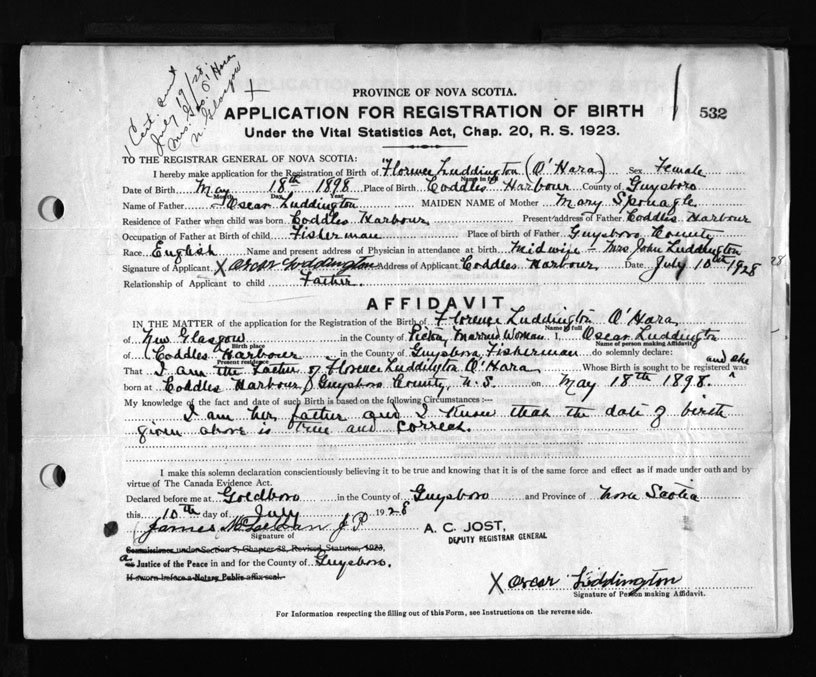 1 Cert. sent
July 19/28.
Mrs. Geo. O'Hara
N. Glasgow
PROVINCE OF NOVA SCOTIA.
APPLICATION FOR REGISTRATION OF BIRTH
532
Under the Vital Statistics Act, Chap. 20, R. S. 1923.
TO THE REGISTRAR GENERAL OF NOVA SCOTIA:
I hereby make application for the Registration of Birth of Florence Luddington (O'Hara) Sex Female
Name in full
Date of Birth May 18th 1898 Place of Birth Coddles Harbour County of Guysboro
Month Day Year
Name of Father Oscar Luddington MAIDEN NAME of Mother Mary Sponagle
Residence of Father when child was born Coddles Harbour Present address of Father Coddles Harbour
Occupation of Father at Birth of child Fisherman Place of birth of Father Guysboro County
Race English Name and present address of Physician in attendance at birth midwife - Mrs John Luddington
Signature of Applicant X Oscar Luddington Address of Applicant Coddles Harbour Date July 10th 1928
28
Relationship of Applicant to child Father.
AFFIDAVIT
IN THE MATTER of the application for the Registration of the Birth of Florence Luddington O'Hara
Name in full
of New Glasgow in the County of Pictou, Married Woman I, Oscar Luddington
Birth place Name of person making Affidavit
of Coddles Harbour in the County of Guysboro Fisherman do solemnly declare:
Present residence
That I am the father of Florence Luddington O'Hara Whose Birth is sought to be registered was and she
born at Coddles Harbour, Guysboro County, N.S. on May 18th 1898.
My knowledge of the fact and date of such Birth is based on the following Circumstances :—
I am her father and I know that the date of birth
given above is true and correct.
I make this solemn declaration conscientiously believing it to be true and knowing that it is of the same force and effect as if made under oath and by
virtue of The Canada Evidence Act.
Declared before me at Goldboro in the County of Guysboro and Province of Nova Scotia
this 10th day of July 1928
James J P
Signature of
A. C. JOST,
DEPUTY REGISTRAR GENERAL
Commissioner under Section 5, Chapter 38, Revised Statutes, 1923,
a Justice of the Peace in and for County of Guysboro.
If sworn before a Notary Public affix seal.
X Oscar Luddington
Signature of Person making Affidavit.
For Information respecting the filling out of this Form, see Instructions on the reverse side.